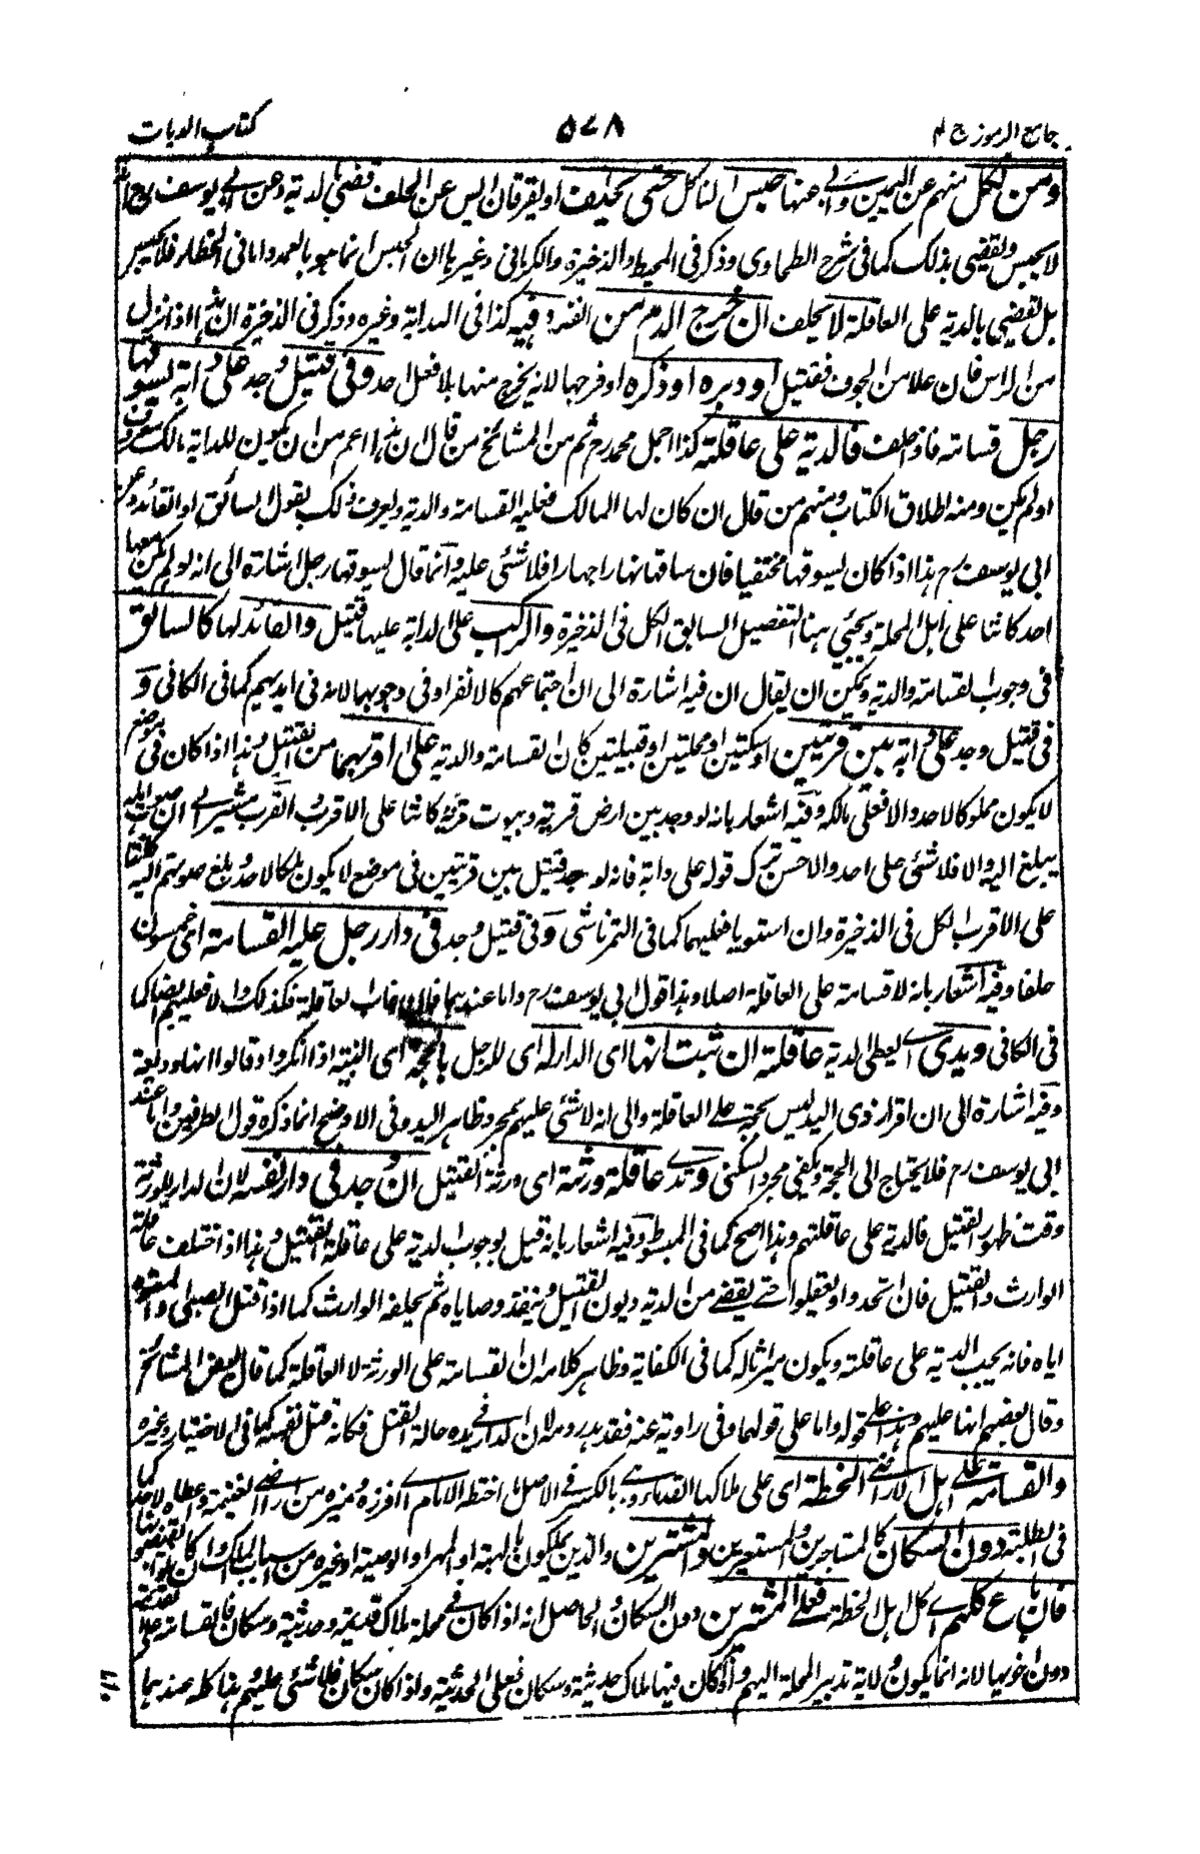 جامع الرموز ج ٤
٥٧٨
كتاب الديات
ومن نكل منهم عن اليمين وابى عنها حبس الناكل حتى يحلف او يقر فان ايس عن الحلف قضى بالدية وعن ابى يوسف رح انه
لا يحبس ويقضى بذلك كما فى شرح الطحاوى وذكر فى المحيط والذخيرة والكرمانى وغيرها ان الحبس انما هو بالعمد واما فى الخطأ فلا يحبس
بل يقضى بالدية على العاقلة لا يحلف ان خرج الدم من انفه وفيه كذا فى الهداية وغيره وذكر فى الذخيرة ان هذا اذا نزل
من الراس فان علا من الجوف فقتيل او دبره او ذكره او فرجها لانه يخرج منها بلا فعل احد وفى قتيل وجد على دابة يسوقها
رجل قسامته فاذا حلف فالدية على عاقلته كذا اجمل محمد رح ثم من المشائخ من قال ان هذا اعم من ان يكون للدابة مالك معروف
او لم يكن ومنه اطلاق الكتاب ومنهم من قال ان كان لها المالك فعليه القسامة والدية ويعرف ذلك بقول السائق او القائد وعن
ابى يوسف رح هذا اذا كان يسوقها مختفيا فان ساقها نهارا جهارا فلا شئى عليه وانما قال يسوقها رجل اشارة الى انه لو لم يكن معها
احد كانتا على اهل المحلة ويجئى هنا التفصيل السابق الكل فى الذخيرة والراكب على الدابة عليها قتيل والقائد لها كالسائق
فى وجوب القسامة والدية ويمكن ان يقال ان فيه اشارة الى ان اجتماعهم كالانفراد فى وجوبها لانه فى ايديهم كما فى الكافى و
فى قتيل وجد على دابة بين قريتين او سكتين او محلتين او قبيلتين كان القسامة والدية على اقربهما من القتيل وهذا اذا كان فى موضع
لا يكون مملوكا لاحد والا فعلى مالكه وفيه اشعار بانه لو وجد بين ارض قرية وبيوت قرية كانتا على الاقرب القرب مشير الى ان صوت اهله
يبلغ اليه والا فلا شئى على احد والاحسن ترك قوله على دابة فانه لو وجد قتيل بين قريتين فى موضع لا يكون ملكا لاحد يبلغ صوتهم اليه كانتا
على الاقرب الكل فى الذخيرة وان استويا فعليهما كما فى التمرتاشى وفى قتيل وجد فى دار رجل عليه القسامة اى خمسون
حلفا وفيه اشعار بانه لا قسامة على العاقلة اصلا وهذا قول ابى يوسف رح واما عندهما فان غاب العاقلة فكذلك والا فعليهم ايضا كما
فى الكافى ويدى اى يعطى الدية عاقلته ان ثبت انها اى الدار له اى للرجل بالحجة اى البينة اذا انكروا وقالوا انها وديعة
وفيه اشارة الى ان اقرار ذى اليد ليس بحجة على العاقلة والى انه لا شئى عليهم بمجرد ظاهر اليد وفى الاوضح انما ذكره قول الطرفين واما عند
ابى يوسف رح فلا يحتاج الى الحجة ويكفى مجرد السكنى وتدى عاقلة ورثته اى ورثة القتيل ان وجد فى دار نفسه لان الدار للورثة
وقت ظهور القتيل فالدية على عاقلتهم وهذا اصح كما فى المبسوط وفيه اشعار بانه قيل بوجوب الدية على عاقلة القتيل وهذا اذا اختلف عاقلة
الوارث والقتيل فان اتحدوا يعقلوا حتى يقضى من الدية ديون القتيل وينفذ وصاياه ثم يخلفه الوارث كما اذا قتل الصبى والمعتوه
اباه فانه يجب الدية على عاقلته ويكون ميراثا له كما فى الكفاية وظاهر كلامه ان القسامة على الورثة لا العاقلة كما قال بعض المشائخ
وقال بعضهم انها عليهم وهذا على قوله واما على قولهما وفى رواية عنه فقد هدر دمه لان الدار فى يده حالة القتل فكانه قتل نفسه كما فى الاختيار وغيره
والقسامة على اهل الاراضى الخطة اى على ملاكها القدماء وهى بالكسر فى الاصل ما اختطه الامام اى افرزه وميزه من اراضى الغنيمة واعطاه لاحد كما
فى الطلبة دون السكان كالمستاجرين والمستعيرين والمشترين والذين يملكون بالهبة او المهر او الوصية او غيره من اسباب الملك
فان باع كلهم اى كل اهل الخطة فعلى المشترين دون السكان والحاصل انه اذا كان فى محلة ملاك قديمة وحديثة وسكان فالقسامة على القديمة
دون اخويها لانه انما يكون ولاية تدبير المحلة اليهم واذا كان فيها ملاك حديثة وسكان فعلى الحديثة واذا كان سكان فلا شئى عليهم هذا كله عندهما